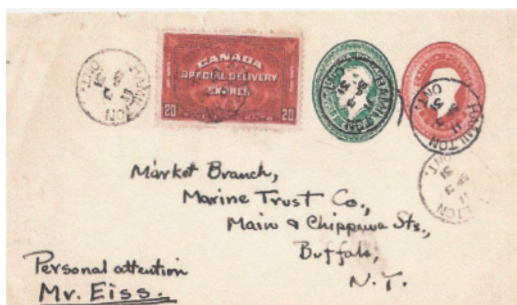 CANADA
SPECIAL DELIVERY
EXPRES
20 20
HAMILTON
ONT.
HAMILTON
ONT.
Market Branch,
Marine Trust Co.,
Main & Chippewa Sts.,
Buffalo,
N.Y.
Personal attention
Mr. Eiss.